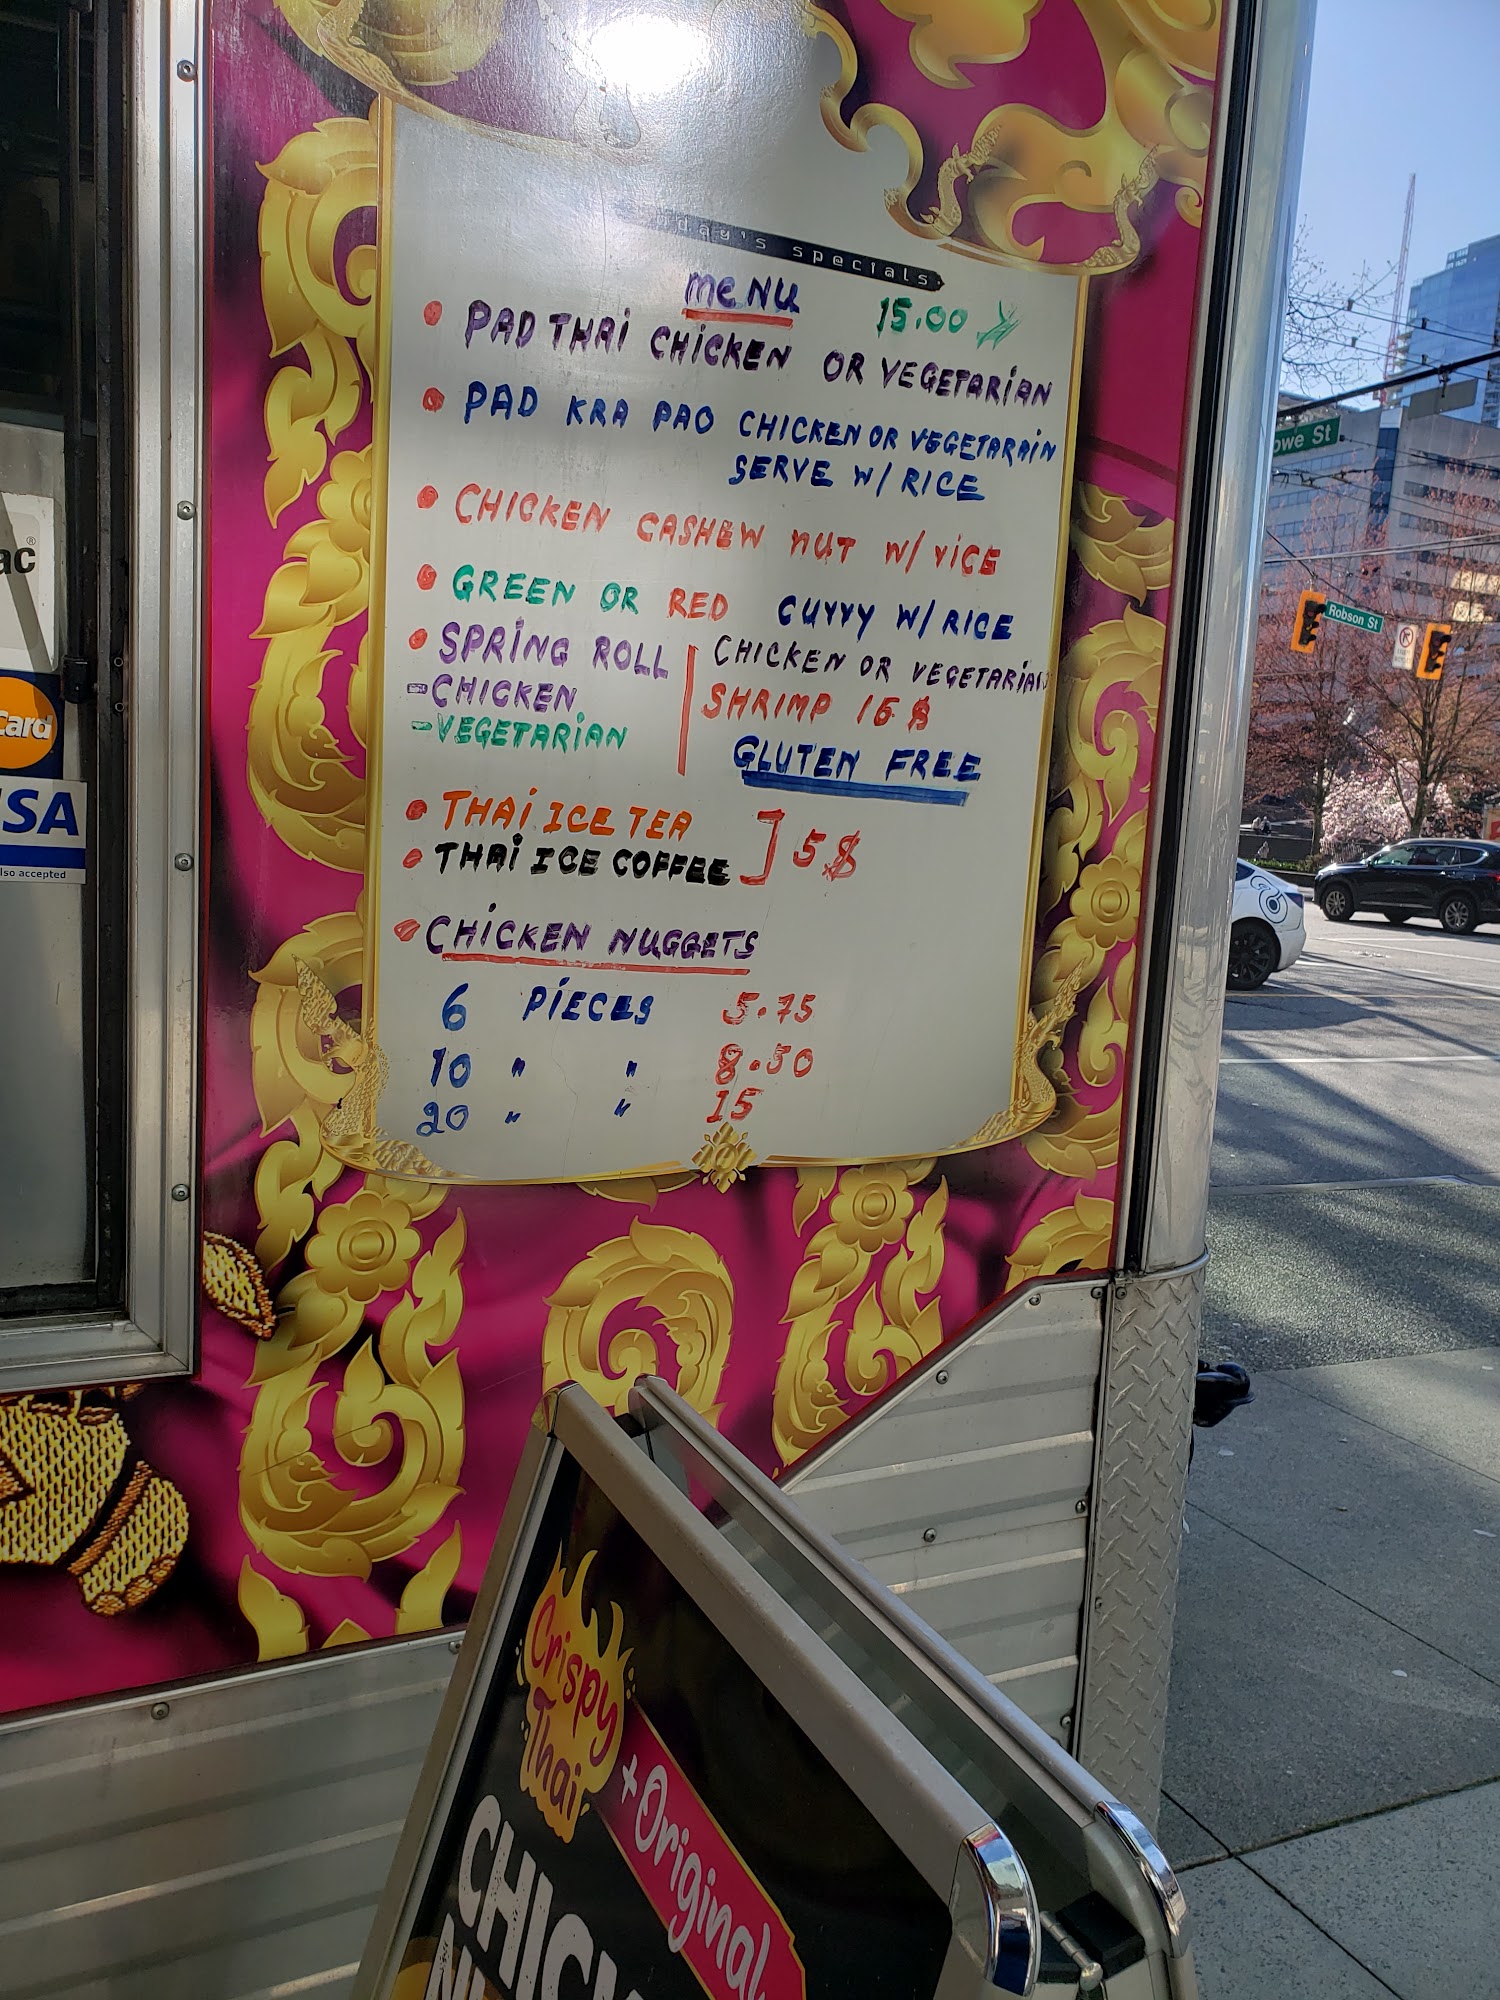 day's specials
MENU 15.00
• PAD THAI CHICKEN OR VEGETARIAN
• PAD KRA PAO CHICKEN OR VEGETARAIN
SERVE W/ RICE
• CHICKEN CASHEW NUT W/ RICE
• GREEN OR RED CURRY W/ RICE
CHICKEN OR VEGETARIAN
SHRIMP 16 $
GLUTEN FREE
• SPRING ROLL
- CHICKEN
- VEGETARIAN
• THAI ICE TEA
• THAI ICE COFFEE ] 5$
• CHICKEN NUGGETS
6 PIECES 5.75
10 " " 8.50
20 " " 15
Crispy
Thai
+ Original
CHIC
N
ac®
Card
ISA
lso accepted
owe St
Robson St